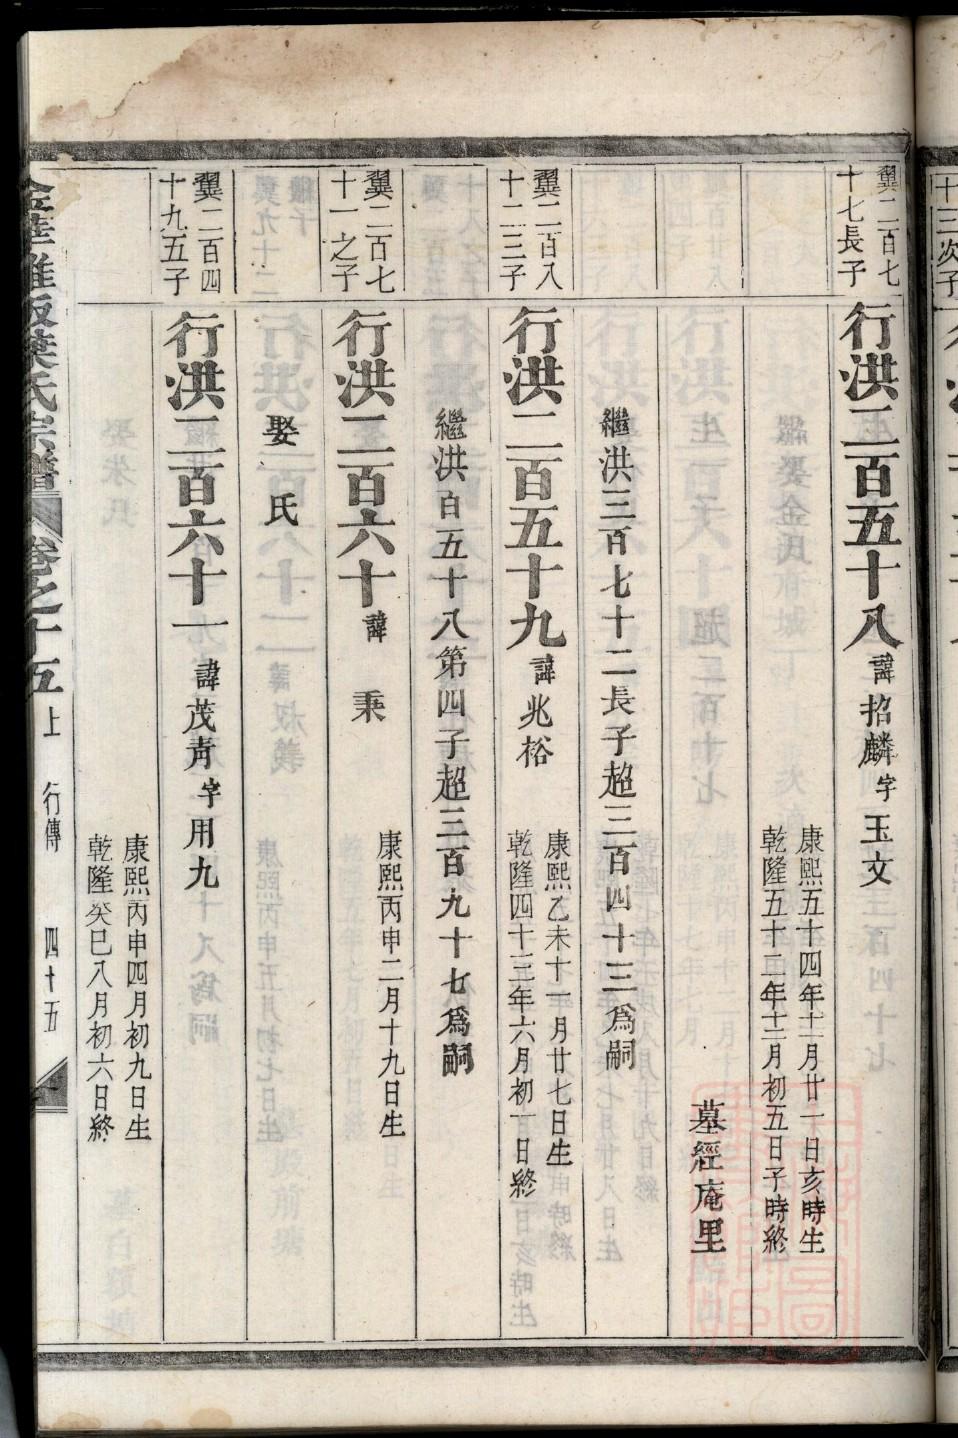 翼二百七
十七長子
行洪二百五十八諱招麟字玉文
康熙五十四年十二月廿一日亥時生
乾隆五十二年十二月初五日子時終
墓經庵里
繼洪三百七十二長子超三百四十三爲嗣
翼二百八
十二三子
行洪二百五十九諱兆裕
康熙乙未十一月廿七日生
乾隆四十三年六月初一日終
繼洪百五十八第四子超三百九十七爲嗣
翼二百七
十一之子
行洪二百六十諱秉
康熙丙申二月十九日生
娶氏
翼二百四
十九五子
行洪二百六十一諱茂靑字用九
康熙丙申四月初九日生
乾隆癸巳八月初六日終
葉氏宗譜卷之十五上行傳四十五
十三次子